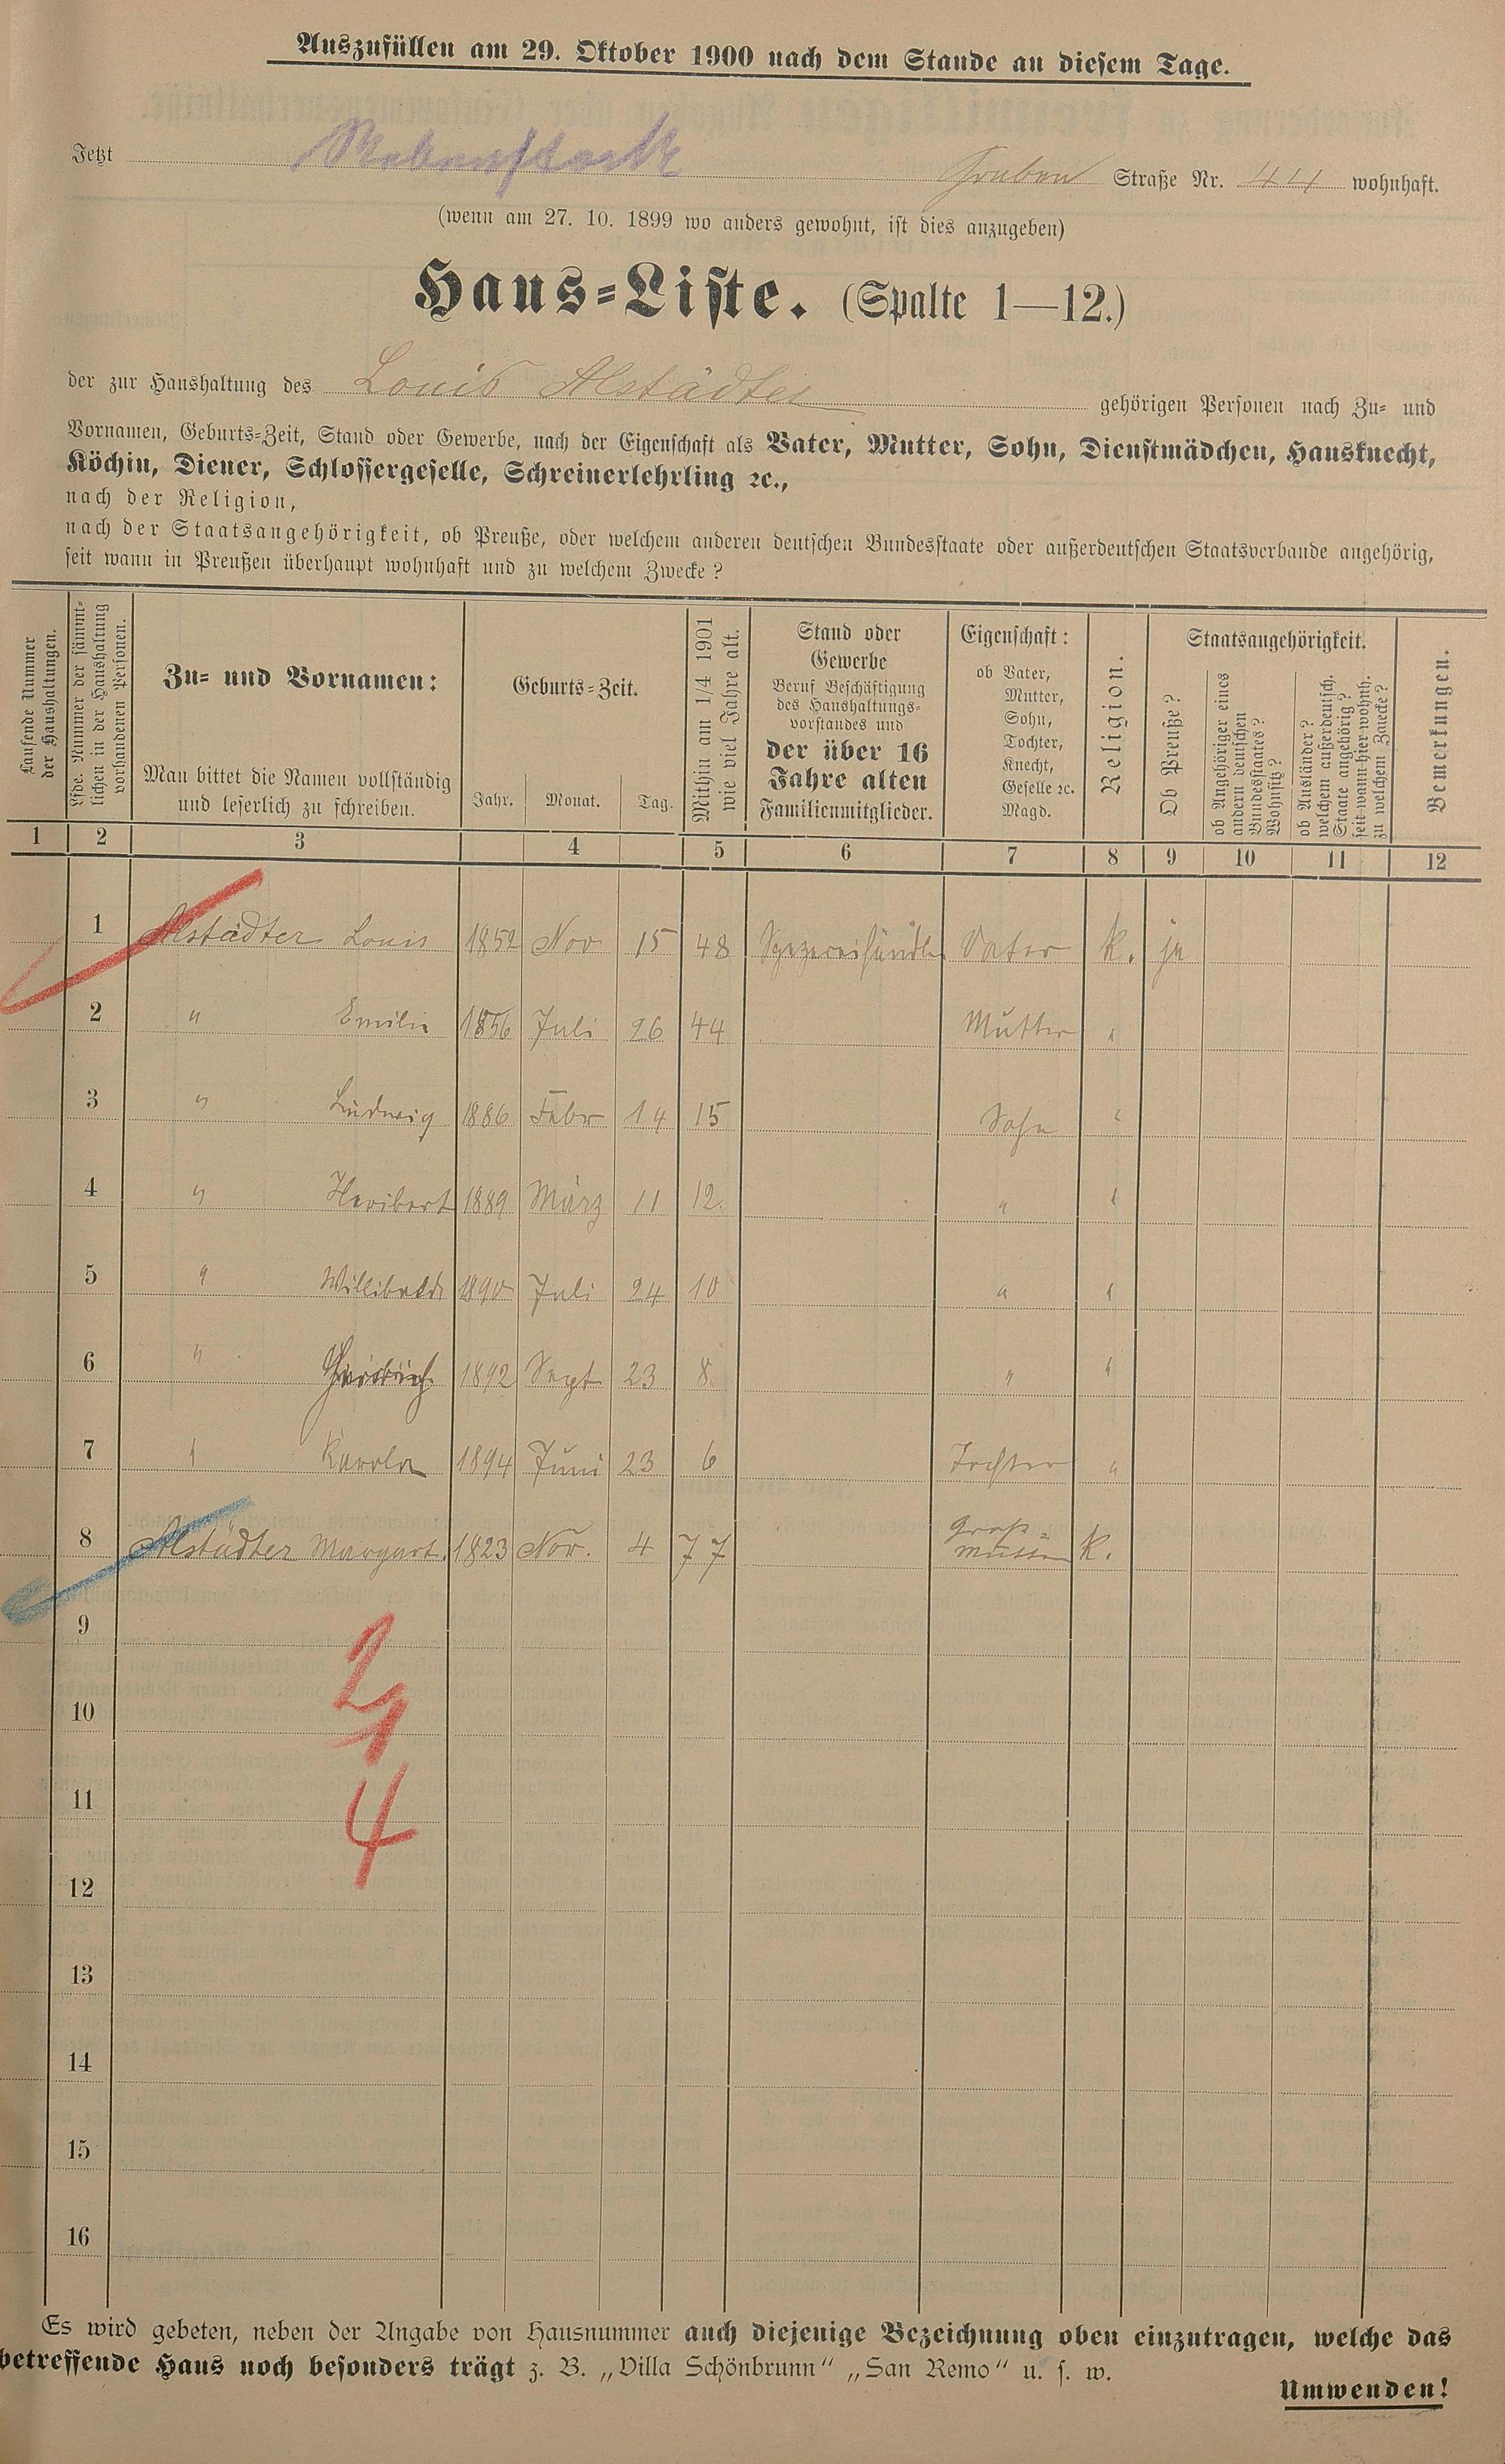 Auszufüllen am 29. Oktober 1900 nach dem Stande an diesem Tage.
Jetzt Rebenstock Graben Straße Nr. 44 wohnhaft.
(wenn am 27. 10. 1899 wo anders gewohnt, ist dies anzugeben)
Haus-Liste. (Spalte 1—12.)
der zur Haushaltung des Louis Alstädter gehörigen Personen nach Zu- und
Vornamen, Geburts-Zeit, Stand oder Gewerbe, nach der Eigenschaft als Vater, Mutter, Sohn, Dienstmädchen, Hausknecht,
Köchin, Diener, Schlossergeselle, Schreinerlehrling ꝛc.,
nach der Religion,
nach der Staatsangehörigkeit, ob Preuße, oder welchem anderen deutschen Bundesstaate oder außerdeutschen Staatsverbande angehörig,
seit wann in Preußen überhaupt wohnhaft und zu welchem Zwecke?
Laufende Nummer
der Haushaltungen.
Lfde. Nummer der sämmt-
lichen in der Haushaltung
vorhandenen Personen.
Zu- und Vornamen:
Man bittet die Namen vollständig
und leserlich zu schreiben.
Geburts-Zeit.
Jahr. Monat. Tag.
Mithin am 1/4 1901
wie viel Jahre alt.
Stand oder
Gewerbe
Beruf Beschäftigung
des Haushaltungs-
vorstandes und
der über 16
Jahre alten
Familienmitglieder.
Eigenschaft:
ob Vater,
Mutter,
Sohn,
Tochter,
Knecht,
Geselle ꝛc.
Magd.
Religion.
Staatsangehörigkeit.
Ob Preuße?
ob Angehöriger eines
andern deutschen
Bundesstaates?
Wohnsitz?
ob Ausländer?
welchem außerdeutsch.
Staate angehörig?
seit wann hier wohnh.
zu welchem Zwecke?
Bemerkungen.
1 2 3 4 5 6 7 8 9 10 11 12
1 Alstädter Louis 1852 Nov 15 48 Spezereihändler Vater K. ja
2 " Emilie 1856 Juli 26 44 Mutter "
3 " Ludwig 1886 Febr 14 15 Sohn "
4 " Heribert 1889 März 11 12. " "
5 " Willibald 1890 Juli 24 10 " "
6 " 1892 Sept 23 8 " "
7 " Karola 1894 Juni 23 6 Tochter "
8 Alstädter Margart. 1823 Nov. 4 77 Groß-
mutter K.
9
10
11
4
12
13
14
15
16
Es wird gebeten, neben der Angabe von Hausnummer auch diejenige Bezeichnung oben einzutragen, welche das
betreffende Haus noch besonders trägt z. B. „Villa Schönbrunn" „San Remo" u. s. w.
Umwenden!